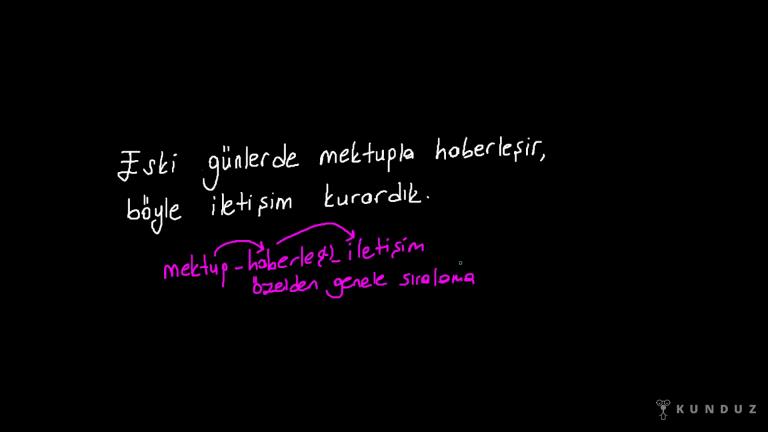 Eski günlerde mektupla haberleşir,
böyle iletişim kurardık.
mektup - haberleşi iletişim
özelden genele sıralama
KUNDUZ